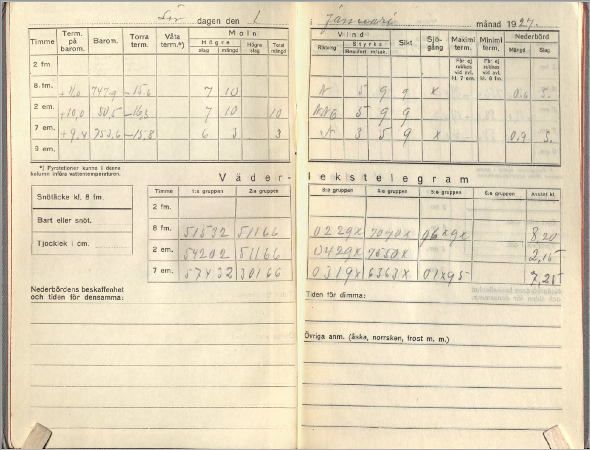 Lör dagen den 1 i januari månad 1927.
Timme Term. på barom. Barom. Torra term. Våta term.*) Moln
Högre Högre Total
slag mängd slag mängd
2 fm.
8 fm. +11,0 747,9 −15,6 7 10
2 em. +10,0 50,5 −16,3 7 10 10
7 em. +9,4 753,6 −15,8 6 3 3
9 em.
*) Fyrstationer kunna i denna
kolumn införa vattentemperaturen.
Vind Sikt Sjö-gång Maximi term. Minimi term. Nederbörd
Riktning Styrka Mängd Slag
Beaufort m/sek.
För ej rutiken vid avl. kl. 7 em. För ej rutiken vid avl. kl. 8 fm.
N 5 9 9 × 0,6 S.
NNO 5 9 9
N 3 5 9 × 0,9 S.
Väder-lekstelegram
Snötäcke kl. 8 fm.
Bart eller snöt.
Tjocklek i cm.
Timme 1:a gruppen 2:a gruppen 3:e gruppen 4:e gruppen 5:e gruppen 6:e gruppen Avsänt kl.
2 fm.
8 fm. 51532 51166 0229x 7070x 8,20
2 em. 54202 51166 0429x 7550x 2,15
7 em. 57432 30166 0319x 6363x 01x95 7,25
Nederbördens beskaffenhet
och tiden för densamma:
Tiden för dimma:
Övriga anm. (åska, norrsken, frost m. m.)